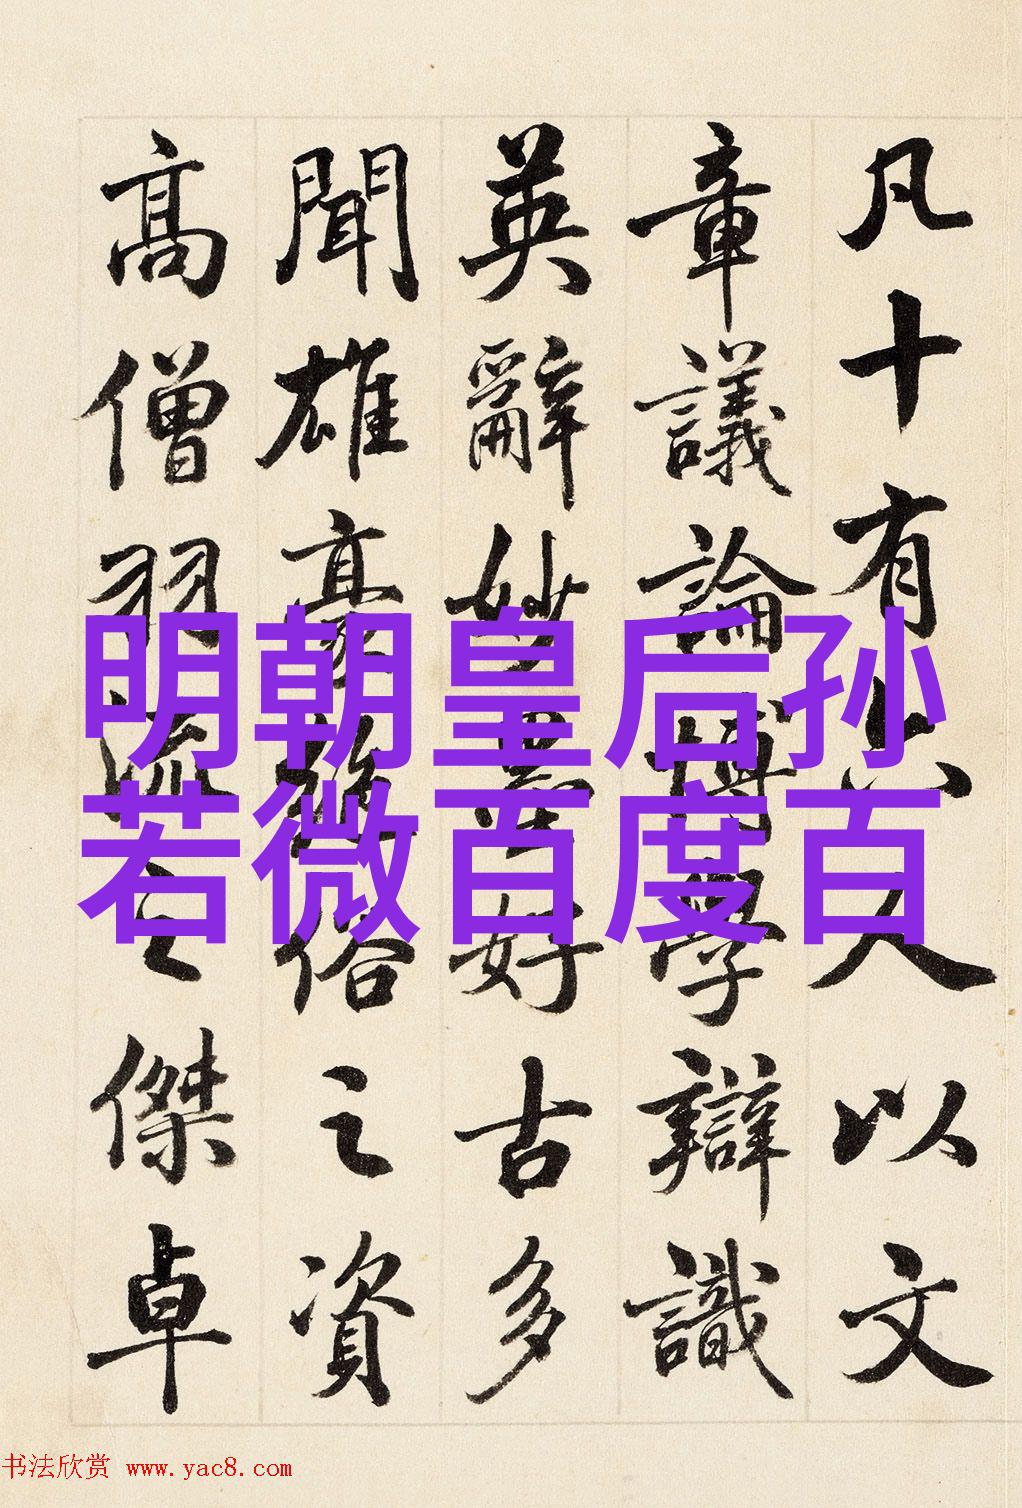 凡十有六人以文
章議論博學辯識
英辭妙墨好古多
聞雄豪絕俗之資
高僧羽流之傑卓
明朝皇后孙
若微百度百
书法欣赏 www.yac8.com